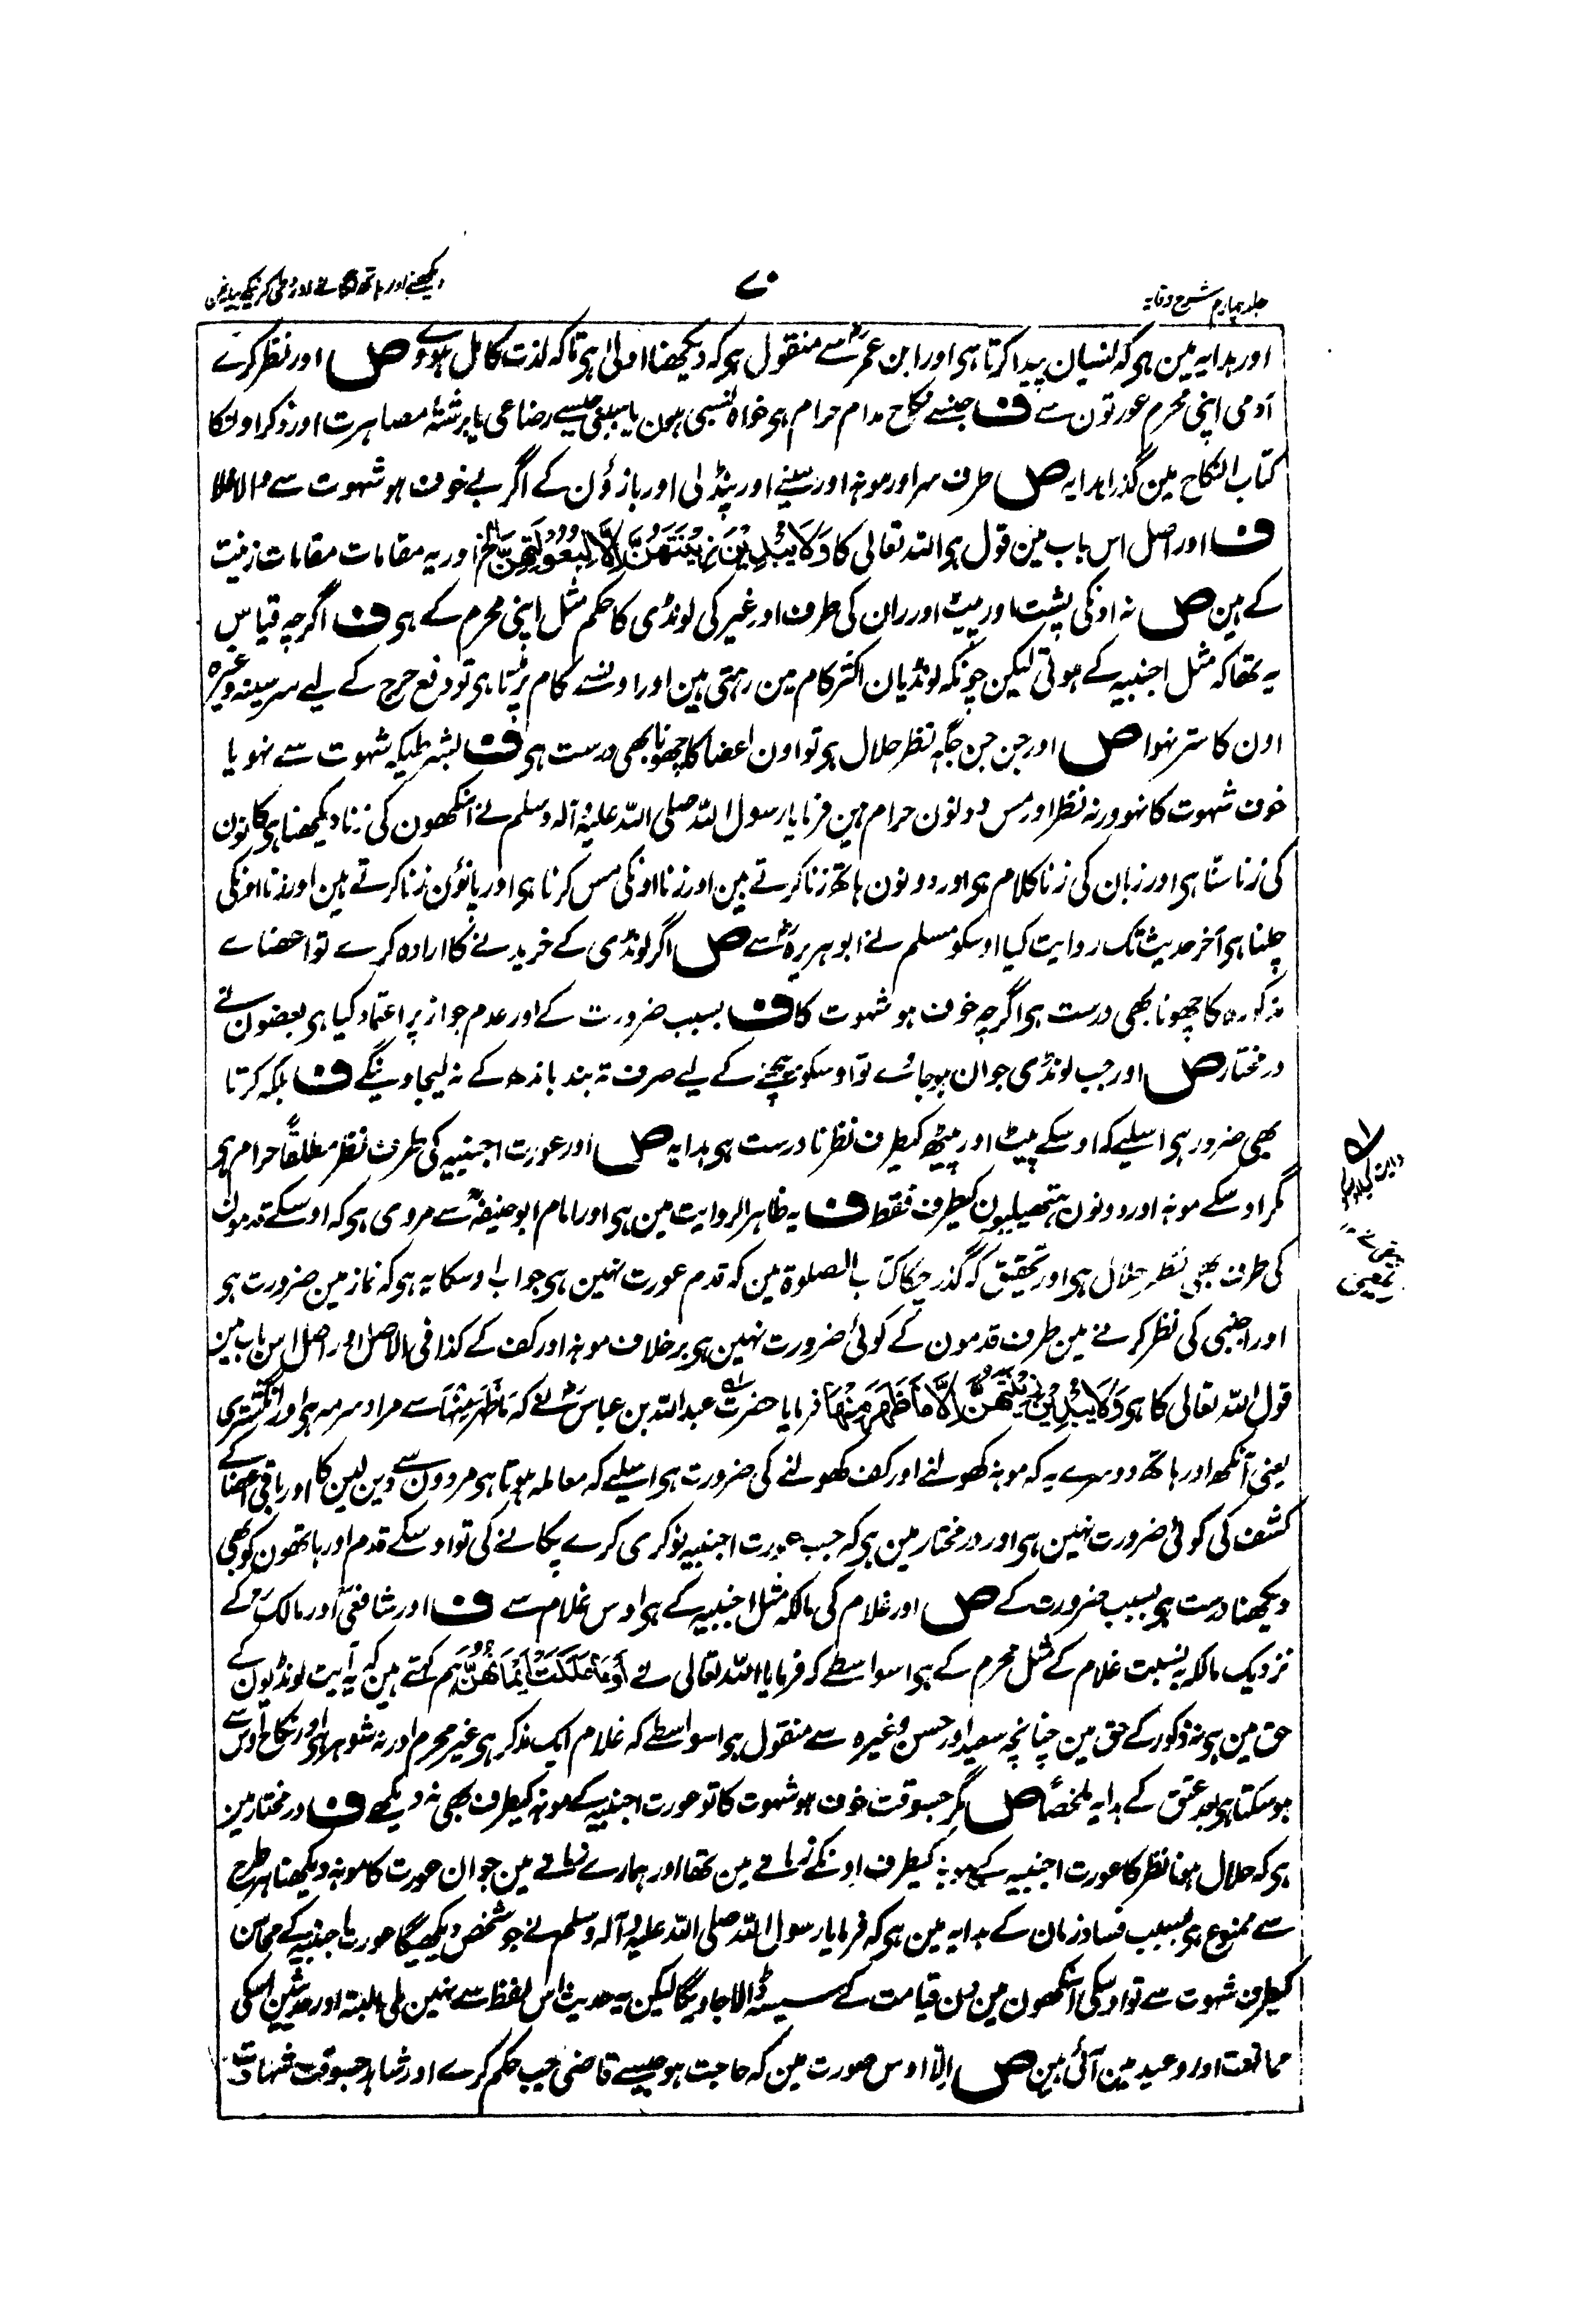 جلد چہارم شرح وقایہ
۷۰
دیکھنے اور ہاتھ لگانے اور وطی کرنیکے بیانمین
اور ہدایہ مین ہی کہ نسیان پیدا کرتا ہی اور ابن عمرؓ سے منقول ہی کہ دیکھنا اولیٰ ہی تاکہ لذت کامل ہووے ص اور نظر کرے
آدمی اپنی محرم عورتون سے ف جنسے نکاح مدام حرام ہی خواہ نسبی ہون یا سببی جیسے رضاعی یا برشتۂ مصاہرت اور ذکر اونکا
کتاب النکاح مین گذرا ہدایہ ص طرف سر اور مونہ اور سینے اور پنڈلی اور بازوٴن کے اگر بے خوف ہو شہوت سے والا فلا
ف اور اصل اس باب مین قول ہی اللہ تعالی کا وَلَا یُبْدِیْنَ زِیْنَتَهُنَّ اِلَّا لِبُعُوْلَتِهِنَّ الخ اور یہ مقامات مقامات زینت
کے ہین ص نہ اونکی پشت اور پیٹ اور ران کی طرف اور غیر کی لونڈی کا حکم مثل اپنی محرم کے ہی ف اگرچہ قیاس
یہ تھا کہ مثل اجنبیہ کے ہوتی لیکن چونکہ لونڈیان اکثر کام مین رہتی ہین اور اونسے کام پڑتا ہی تو دفع حرج کے لیے سر سینہ وغیرہ
اون کا ستر نہوا ص اور جن جن جگہ نظر حلال ہی تو اون اعضا کا چھونا بھی درست ہی ف بشرطیکہ شہوت سے نہو یا
خوف شہوت کا نہو ورنہ نظر اور مس دونون حرام ہین فرمایا رسول اللہ صلی اللہ علیہ وآلہ وسلم نے آنکھون کی زنا دیکھنا ہی کانون
کی زنا سنّا ہی اور زبان کی زنا کلام ہی اور دونون ہاتھ زنا کرتے ہین اور زنا اونکی مس کرنا ہی اور پانوٴن زنا کرتے ہین اور زنا اونکی
چلنا ہی آخر حدیث تک روایت کیا اوسکو مسلم نے ابوہریرہؓ سے ص اگر لونڈی کے خریدنے کا ارادہ کرے تو اعضاے
مذکورہ کا چھونا بھی درست ہی اگرچہ خوف ہو شہوت کا ف بسبب ضرورت کے اور عدم جواز پر اعتماد کیا ہی بعضون نے
درمختار ص اور جب لونڈی جوان ہوجائے تو اوسکو بیچنے کے لیے صرف تہ بند باندھ کے نہ لیجاوینگے ف بلکہ کرتا
بھی ضرور ہی اسلیے کہ اوسکے پیٹ اور پیٹھ کیطرف نظر نا درست ہی ہدایہ ص اور عورت اجنبیہ کی طرف نظر مطلقًا حرام ہی
مگر اوسکے مونہ اور دونون ہتھیلیون کیطرف فقط ف یہ ظاہر الروایت مین ہی اور امام ابو حنیفہؒ سے مروی ہی کہ اوسکے قدمون
کی طرف بھی نظر حلال ہی اور تحقیق کہ گذر چکا کتاب الصلوۃ مین کہ قدم عورت نہین ہی جواب اوسکا یہ ہی کہ نماز مین ضرورت ہی
اور اجنبی کی نظر کرنے مین طرف قدمون کے کوئی ضرورت نہین ہی برخلاف مونہ اور کف کے کذا فی الاصل اور اصل اس باب مین
قول اللہ تعالی کا ہی وَلَا یُبْدِیْنَ زِیْنَتَهُنَّ اِلَّا مَا ظَهَرَ مِنْهَا فرمایا حضرت عبداللہ بن عباسؓ نے کہ مَا ظَهَرَ مِنْهَا سے مراد سرمہ ہی اور انگشتری
یعنی آنکھ اور ہاتھ دوسرے یہ کہ مونہ کھولنے اور کف کھولنے کی ضرورت ہی اسلیے کہ معاملہ ہوتا ہی مردون سے دین لین کا اور باقی اعضا کے
کشف کی کوئی ضرورت نہین ہی اور درمختار مین ہی کہ جب عورت اجنبیہ نوکری کرے پکانے کی تو اوسکے قدم اور ہاتھون کو بھی
دیکھنا درست ہی بسبب ضرورت کے ص اور غلام کی مالکہ مثل اجنبیہ کے ہی اوس غلام سے ف اور شافعیؒ اور مالکؒ کے
نزدیک مالکہ بہ نسبت غلام کے مثل محرم کے ہی اسواسطے کہ فرمایا اللہ تعالی نے اَوْ مَا مَلَكَتْ اَیْمَانُهُنَّ ہم کہتے ہین کہ یہ آیت لونڈیون کے
حق مین ہی نہ ذکور کے حق مین چنانچہ سعید اور حسن وغیرہ سے منقول ہی اسواسطے کہ غلام ایک مذکر ہی غیر محرم اور نہ شوہر ہی اور نکاح اوس سے
ہوسکتا ہی بعد عتق کے ہدایہ ملخصًا ص مگر جسوقت خوف ہو شہوت کا تو عورت اجنبیہ کے مونہ کیطرف بھی نہ دیکھے ف درمختار مین
ہی کہ حلال ہونا نظر کا عورت اجنبیہ کے مونہ کیطرف اونکے زمانے مین تھا اور ہمارے زمانے مین جوان عورت کا مونہ دیکھنا ہر طرح
سے ممنوع ہی بسبب فساد زمان کے ہدایہ مین ہی کہ فرمایا رسول اللہ صلی اللہ علیہ وآلہ وسلم نے جو شخص دیکھیگا عورت اجنبیہ کے محاسن
کیطرف شہوت سے تو اوسکی آنکھون مین دن قیامت کے سیسہ ڈالا جاویگا لیکن یہ حدیث اس لفظ سے نہین ملی البتہ اور حدیثین اسکی
ممانعت اور وعید مین آئی ہین ص الّا اوس صورت مین کہ حاجت ہو جیسے قاضی جب حکم کرے اور شاہد جسوقت شہادت